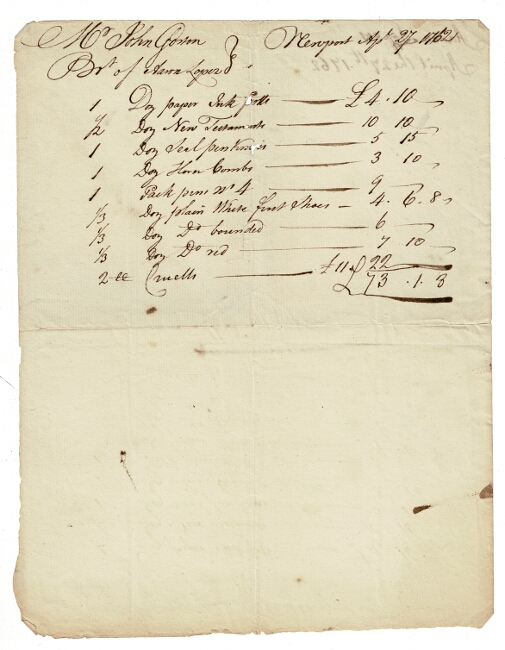 Mr John Gorton Newport Apl 27 1762
Bt of Aaron Lopez
1 Doz paper Ink potts £4 . 10
1/2 Doz New Testaments 10 10
1 Doz Seal penknives 5 15
1 Doz Horn Combs 3 10
1 Pack pins No 4 9
1/3 Doz plain White Shoes 4 . 6 . 8
1/3 Doz Do bounded 6
1/3 Doz Do red 7 10
2 Cruells £11 22
£ 73 . 1 . 8